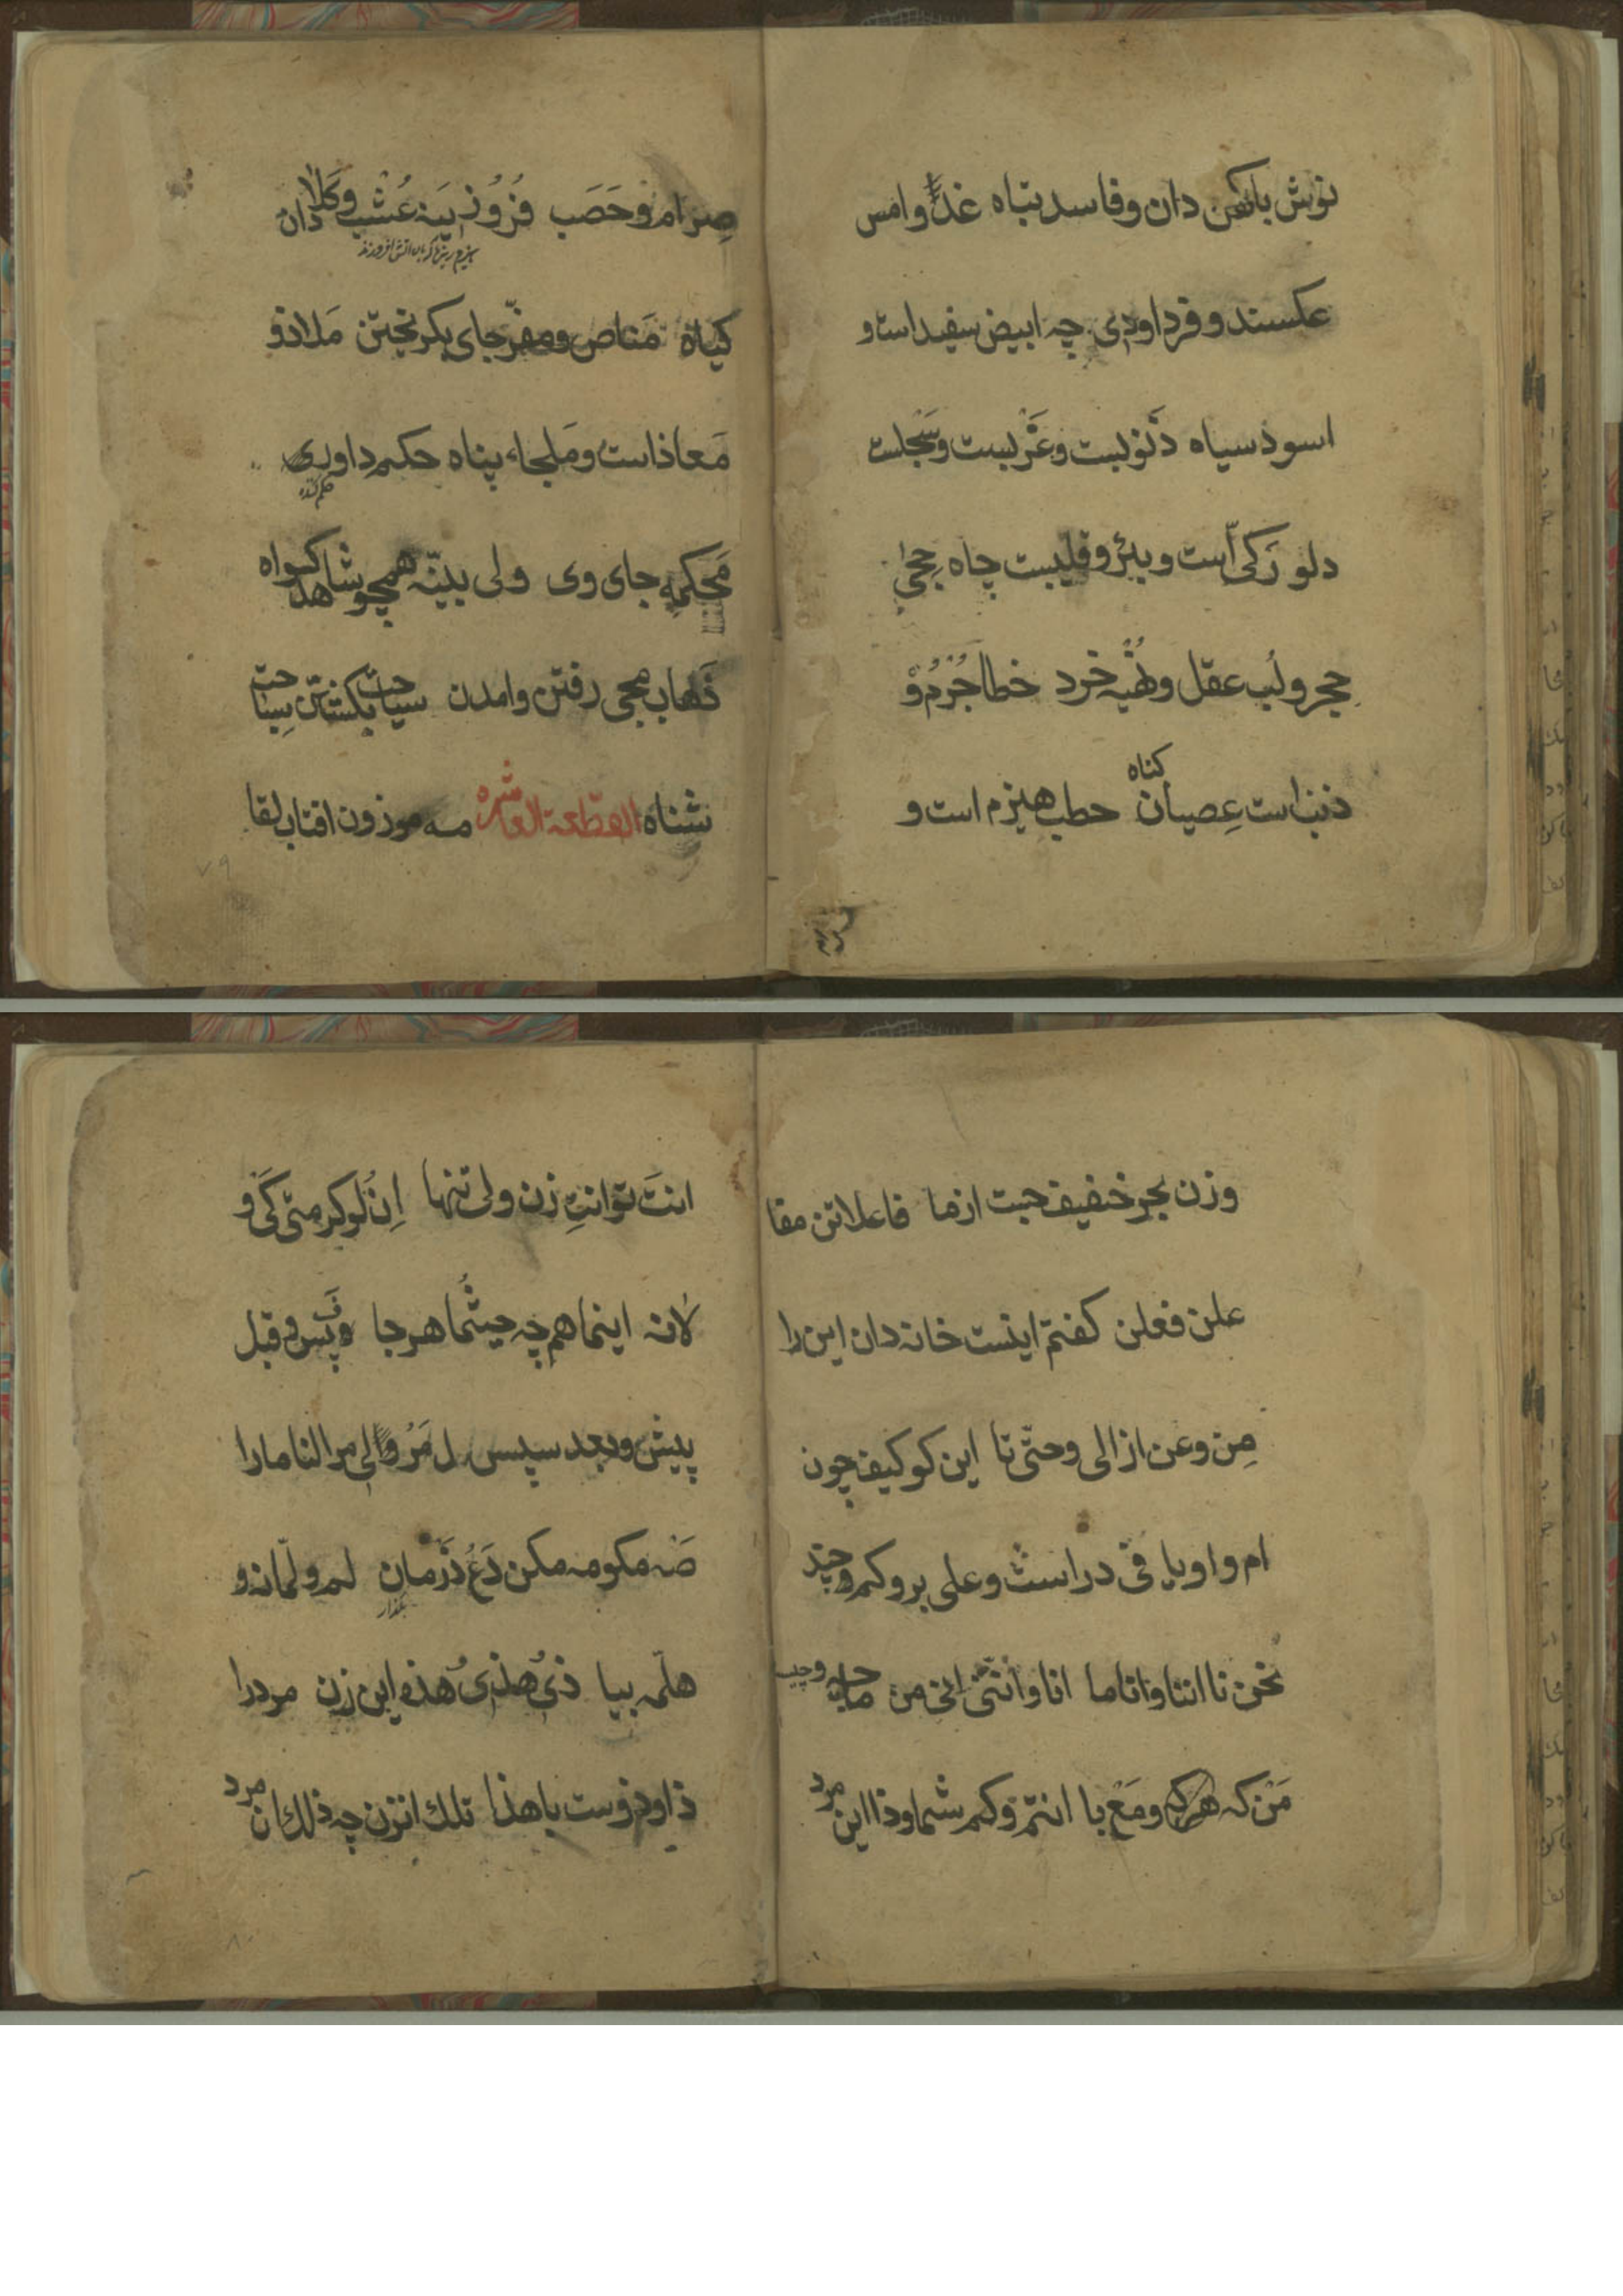 نوش باطن دان و فاسد تباه غدًا و امس
عکسند و فردا و دی چه ابیض سفید است و
اسود سیاه ذنوبست و غربست و سجلست
دلو رکی است و بئر و قلیبست چاه حجی
حجر و لب عقل و نهیه خرد خطا جُرم و
ذنب است عِصیان گناه حطب هیزم است و
صِرام و حَصَب فُرُوزینه عُشب و کَلَا دان
هیزم ریزها که بان اتش افروزند
کیاه مَناص و مفرّ جای بکریختن مَلاذ و
مَعاذ است و مَلجاء پناه حکم داوری
حکم کننده
مَحکمه جای وی ولی بینّه همچو شاهد کواه
ذَهاب مجی رفتن و امدن سیاحت بکشتن سِباحت
شناه القطعة العاشره مه موزون افتاب لقا
۷۹
وزن بحر خفیف جست از ما فاعلاتن مفا
علن فعلن کفتم اینست خانه دان این را
مِن و عن از الی و حتّی تا این کو کیف چون
ام و او یا فی در است و علی بر و کم چند
نحن نا اننا و انا ما انا و انّنی انی من
مَن که هر که و مَع با انتم و کم شما و ذا این مرد
انتَ تو انتِ زن ولی تنها اِن لَو کر متی کَی و
لا نه اینما هم چه حیثُما هر جا فَ پس و قبل
پیش و بعد سپس لِ مَر و لی مرا لنا ما را
صَه مکو مه مکن دَع ذَر مان لم و لمّا نه و
بگذار
هلّم بیا ذی هذی هذه این زن مرد را
ذا و ذو ست با هذا تلک انزن چه ذلک ان مرد
۸۰